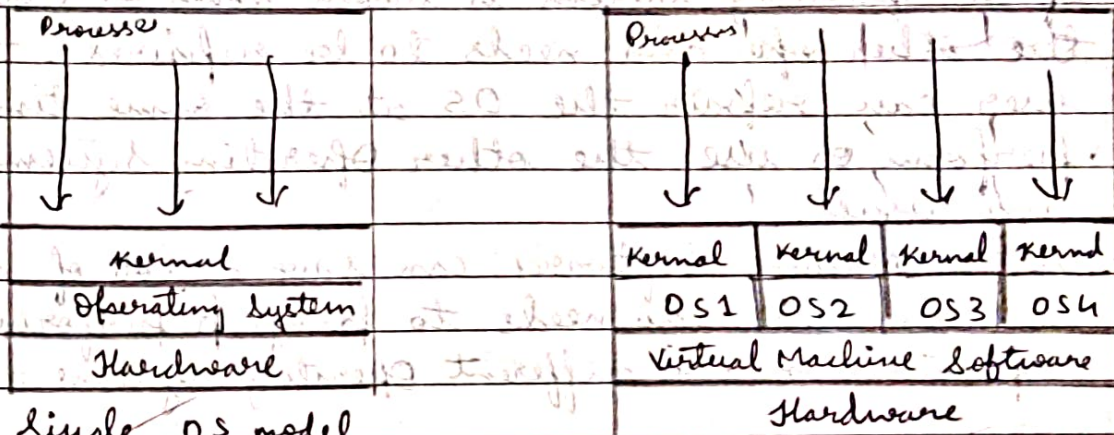 Processe
Kernal
Operating System
Hardware
Single OS model
Processes
Kernal Kernal Kernal Kernal
OS1 OS2 OS3 OS4
Virtual Machine Software
Hardware